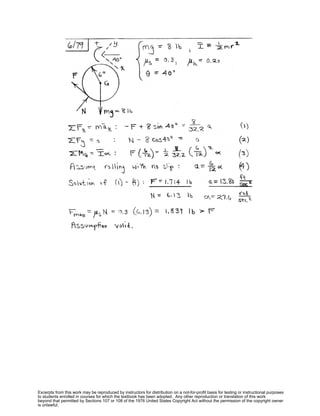 6/79
+ y
x
40°
F
6"
G
N mg = 8 lb
{ mg = 8 lb , I = ½mr²
μs = 0.3, μk = 0.20
θ = 40°
ΣFx = max : - F + 8 sin 40° = 8/32.2 a (1)
ΣFy = 0 : N - 8 cos 40° = 0 (2)
ΣMG = Iα : F (6/12) = ½ 8/32.2 (6/12)² α (3)
Assume rolling with no slip : a = 6/12 α (4)
Solution of (1) - (4) : F = 1.714 lb a = 13.80 ft/sec²
N = 6.13 lb α = 27.6 rad/sec²
Fmax = μs N = 0.3 (6.13) = 1.839 lb > F
Assumption valid.
Excerpts from this work may be reproduced by instructors for distribution on a not-for-profit basis for testing or instructional purposes
to students enrolled in courses for which the textbook has been adopted. Any other reproduction or translation of this work
beyond that permitted by Sections 107 or 108 of the 1976 United States Copyright Act without the permission of the copyright owner
is unlawful.